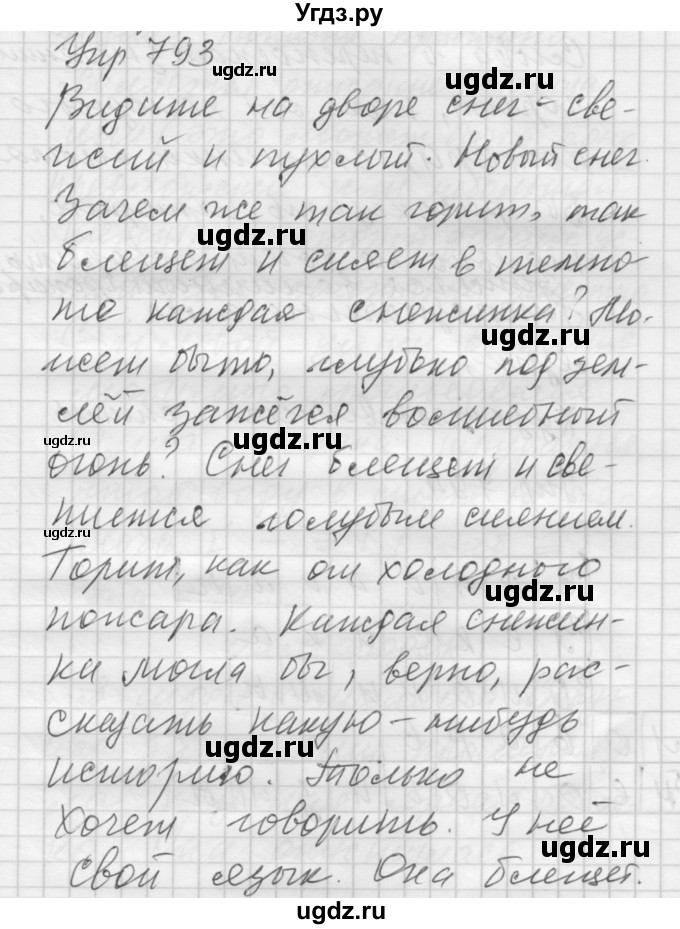 Угдз.ру
Упр 793
ugdz.ru
Видите на дворе снег - све-
жий и пухлый. Новый снег.
Зачем же так горит, так
ugdz.ru
блещет и сияет в темно-
те каждая снежинка? Мо-
ugdz.ru
жет быть, глубоко под зем-
лёй зажёгся волшебный
ugdz.ru ugdz.ru
огонь? Снег блещет и све-
тится голубым сиянием.
ugdz.ru
Горит, как от холодного
ugdz.ru
пожара. Каждая снежин-
ка могла бы, верно, рас-
сказать какую-нибудь
ugdz.ru
историю. Только не
хочет говорить. У неё
ugdz.ru
свой язык. Она блещет.
ugdz.ru